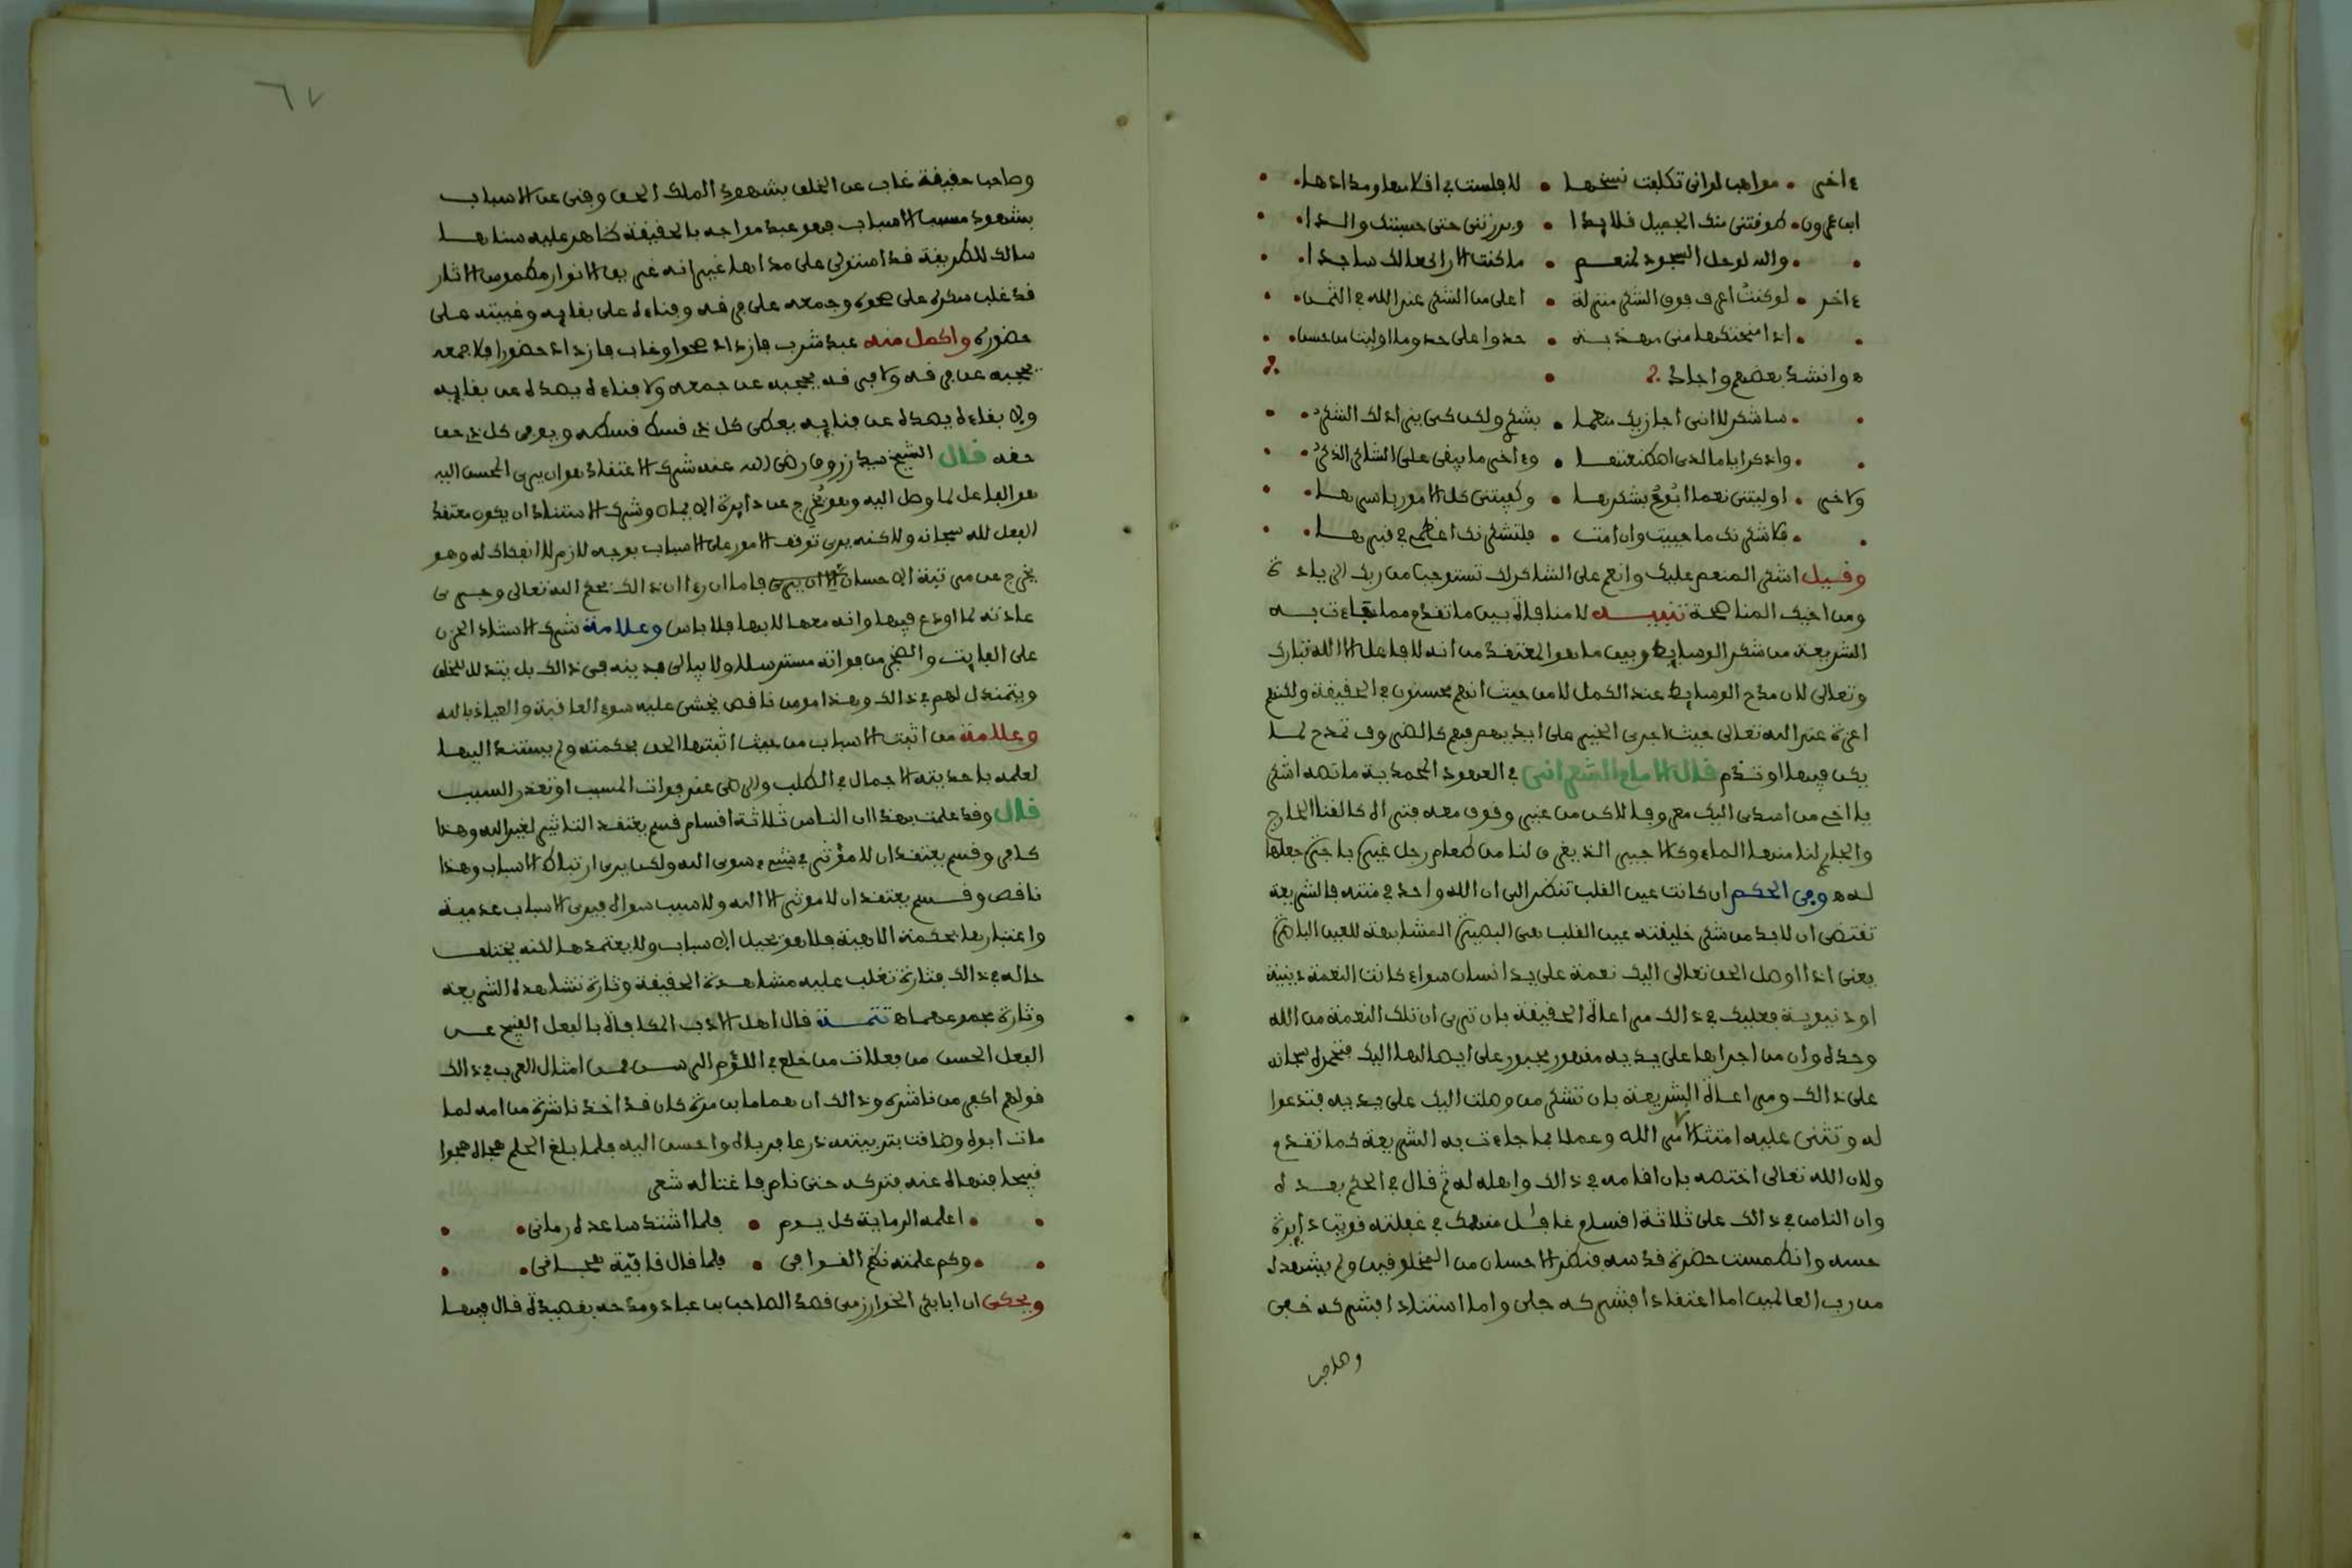 ءاخر • مواهب لو انى تكلفت نسخها • لافلست في اقلامها ومدادها •
ابن عمرون • طوقتنى منك الجميل قلايدا • وبررتنى حتى حسبتك والدا •
• والله لو حل السجود لمنعم • ما كنت الا راكعا لك ساجدا •
ءاخر • لو كنت اعرف فوق الشكر منزلة • اعلى من الشكر عند الله في الثمن •
• اذا منحتكها منى مهذبة • حذوا على حذو ما اوليت من حسن •
وانشد بعضهم واجاد
• ساشكر لا انى اجازيك منعما • بشكر ولكن كى يزاد لك الشكر •
• واذكر اياما لدى اصطنعتها • وءاخر ما يبقى على الشاكر الذكر •
ولاخر • اوليتنى نعما ابوح بشكرها • وكفيتنى كل الامور باسرها •
• فلاشكرنك ما حييت وان امت • فلتشكرنك اعظمى في قبرها •
وقيل اشكر المنعم عليك وانعم على الشاكر لك تستوجب من ربك الزيادة
ومن اخيك المناصحة تنبيه لا منافاة بين ما تقدم مما جاءت به
الشريعة من شكر الوسايط وبين ما هو المعتقد من انه لا فاعل الا الله تبارك
وتعالى لان مدح الوسايط عند الكمل لا من حيث انهم محسنون في الحقيقة ولكنهم
اعزة عند الله تعالى حيث اجرى الخير على ايديهم فهم كالضروف تمدح لما
يكن فيها او تذم قال الامام الشعرانى في العهود المحمدية ما نصه اشكر
يا اخى من اسدى اليك معروفا لاكن من غير وقوف معه فترى الا كالقنا الجارى
والجارى لنا منها الماء وكالاجير الذى يغرف لنا من طعام رجل غيره باجرة جعلها
له ه وفى الحكم ان كانت عين القلب تنظر الى ان الله واحد في منته فالشريعة
تقتضى ان لا بد من شكر خليقته عين القلب هى البصيرة المشابهة للعين الباصرة
يعنى اذا اوصل الحق تعالى اليك نعمة على يد انسان سواء كانت النعمة دينية
او دنيوية فعليك في ذالك مراعاة الحقيقة بان ترى ان تلك النعمة من الله
وحده وان من اجراها على يديه مقهور مجبور على ايصالها اليك فتحمده سبحانه
على ذالك ومراعاة الشريعة بان تشكر من وصلت اليك على يديه فتدعوا
له وتثنى عليه امتثالا لامر الله وعملا بما جاءت به الشريعة كما تقدم
ولان الله تعالى اختصه بان اقامه في ذالك واهله له ثم قال في الحكم بعده
وان الناس في ذالك على ثلاثة اقسام غافل منهمك في غفلته قويت دايرة
حسه وانطمست حضرة قدسه فنظر الاحسان من المخلوقين ولم يشهده
من رب العالمين اما اعتقادا فشركه جلى واما استنادا فشركه خفى
وصاحب
٦٧
وصاحب حقيقة غاب عن الخلق بشهود الملك الحق وفنى عن الاسباب
بشهود مسبب الاسباب فهو عبد مواجه بالحقيقة ظاهر عليه سناها
سالك للطريقة قد استولى على مداها غير انه غريق الانوار مطموس الاثار
قد غلب سكره على صحوه وجمعه على فرقه وفناءه على بقايه وغيبته على
حضوره واكمل منه عبد شرب فازداد صحوا وغاب فازداد حضورا فلا جمعه
يحجبه عن فرقه ولا فرقه يحجبه عن جمعه ولا فناءه يصده عن بقايه
ولا بقاءه يصده عن فنايه يعطى كل ذى قسط قسطه ويوفى كل ذى حق
حقه قال الشيخ سيد زروق رضى الله عنه شرك الاعتقاد هو ان يرى المحسن اليه
هو الفاعل لما وصل اليه وهو مخرج عن دايرة الايمان وشرك الاستناد ان يكون معتقد
الفعل لله سبحانه ولاكنه يرى توقف الامور على الاسباب بوجه لازم لا انفكاك له وهو
يخرج عن مرتبة الاحسان فاما ان رءا ان ذالك بحكم الله تعالى وجرى
عادته لما اودع فيها وانه معها لا بها فلا باس وعلامة شرك الاستناد الحزن
على الفايت والضجر من فواته مسترسلا ولا يبالى بدينه فى ذالك بل يتذلل للخلق
ويتمندل لهم في ذالك وهذا مومن ناقص يخشى عليه سوء العاقبة والعياذ بالله
وعلامة من اثبت الاسباب من حيث اثبتها الحق بحكمته ولم يستند اليها
لعلمه باحديته الاجمال في الطلب والرضى عند فوات المسبب او تعذر السبب
قال وقد علمت بهذا ان الناس ثلاثة اقسام قسم يعتقد التاثير لغير الله وهذا
كافر وقسم يعتقد ان لا مؤثر في شىء سوى الله ولكن يرى ارتباط الاسباب وهذا
ناقص وقسم يعتقد ان لا موثر الا الله ولا سبب سواه فيرى الاسباب عدمية
واعتبارها بحكمة الاهية فلا هو يحيل الاسباب ولا يعتمدها لكنه يختلف
حاله في ذالك فتارة تغلب عليه مشاهدة الحقيقة وتارة تشاهده الشريعة
وتارة مجموعهما ه تتمة قال اهل الادب المكافاة بالفعل القبيح عن
الفعل الحسن من فعلات من خلع في اللؤم الرسن فمن امثال العرب في ذالك
قولهم اكفر من ناشرة وذالك ان همام بن مرة كان قد اخذ ناشرة من امه لما
مات ابوه وضاقت بتربيته ذرعا فرباه واحسن اليه فلما بلغ الحلم هجاه هجوا
قبيحا فنهاه عنه فتركه حتى نام فاغتاله شعر
• اعلمه الرماية كل يوم • فلما اشتد ساعده رمانى •
• وكم علمته نظم القوافى • فلما قال قافية هجانى •
ويحكى ان ابا بكر الخوارزمى قصد الصاحب بن عباد ومدحه بقصيدة قال فيها